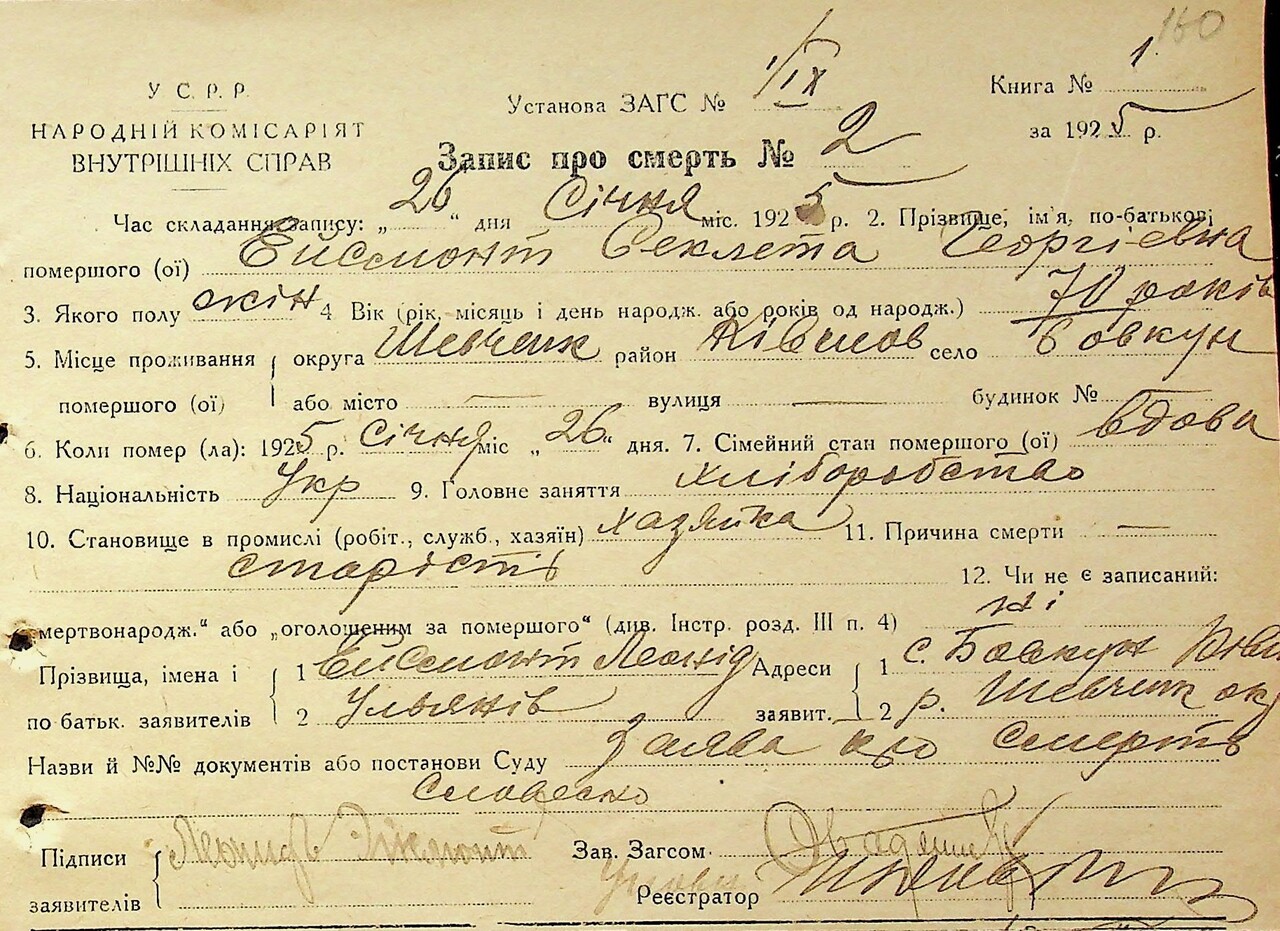 160
У С. Р. Р.
НАРОДНІЙ КОМІСАРІЯТ
ВНУТРІШНІХ СПРАВ
Установа ЗАГС № 1/IX
Книга № 1
за 1925 р.
Запис про смерть № 2
Час складання запису: „26“ дня Січня міс. 1925 р. 2. Прізвище, ім'я, по-батькові
помершого (ої) Ейсмонт Секлета Георгієвна
3. Якого полу жін 4 Вік (рік, місяць і день народж. або років од народж.) 70 років
5. Місце проживання округа Шевченк район Ківшов село Бовкун
помершого (ої) або місто — вулиця — будинок №
6. Коли помер (ла): 1925 р. Січня міс „26“ дня. 7. Сімейний стан помершого (ої) вдова
8. Національність Укр 9. Головне заняття хліборобство
10. Становище в промислі (робіт., служб., хазяїн) хазяйка 11. Причина смерти —
старість 12. Чи не є записаний:
„мертвонародж.“ або „оголошеним за помершого“ (див. Інстр. розд. III п. 4) ні
Прізвища, імена і 1 Ейсмонт Леонід Адреси 1 с. Бовкун
по батьк. заявителів 2 Ульянів заявит. 2 р. Шевченк окр
Назви й №№ документів або постанови Суду Заява про смерть
Словесно
Підписи Леонидъ Эйсмонт Зав. Загсом
заявителів Реєстратор